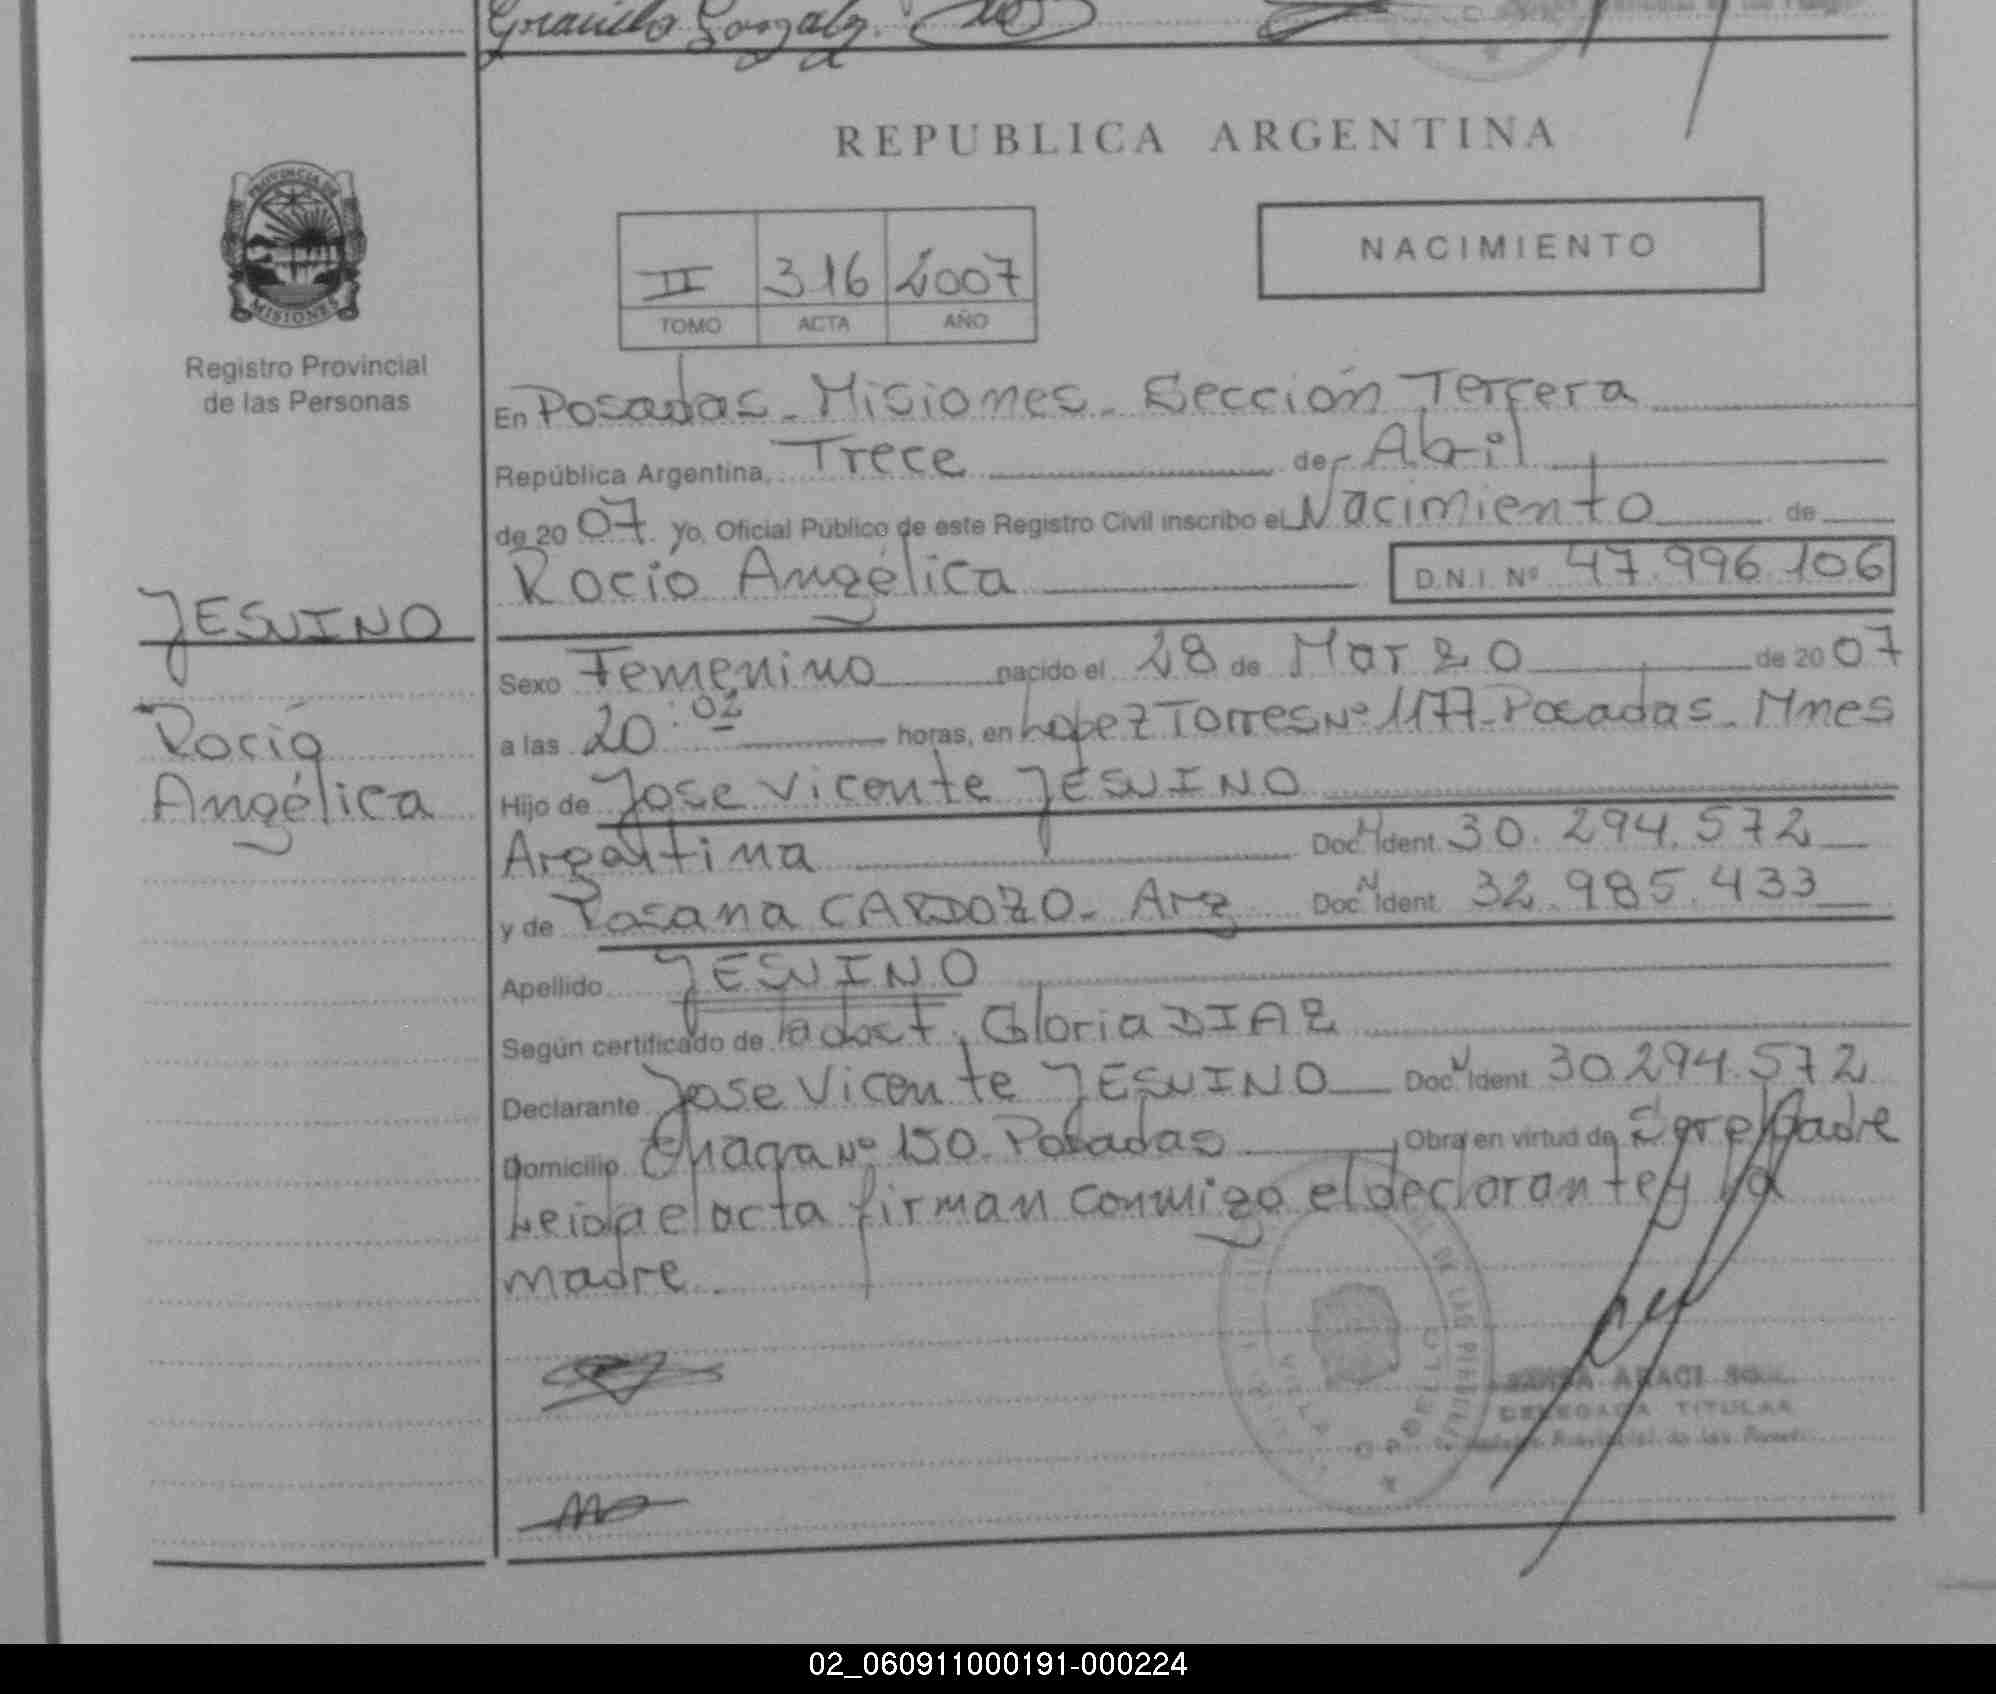 Graciela Gonzalez
REPUBLICA ARGENTINA
PROVINCIA DE
MISIONES
Registro Provincial
de las Personas
NACIMIENTO
II 316 2007
TOMO ACTA AÑO
En Posadas - Misiones - Sección Tercera
República Argentina, Trece de Abril
de 2007. yo, Oficial Público de este Registro Civil inscribo el Nacimiento de
Rocio Angélica D.N.I. Nº 47.996.106
JESUINO
Rocio
Angélica
Sexo Femenino nacido el 28 de Marzo de 2007
a las 20:02 horas, en Lopez Torres Nº 1177 - Posadas - Mnes
Hijo de Jose Vicente JESUINO
Argentina Doc. N Ident. 30.294.572
y de Rosana CARDOZO - Arg Doc. N Ident. 32.985.433
Apellido JESUINO
Según certificado de la obst. Gloria DIAZ
Declarante Jose Vicente JESUINO Doc. N Ident. 30.294.572
Domicilio Nº 150 - Posadas Obra en virtud de Padre
Leida el acta firman conmigo el declarante y la
madre.
DELEGADA TITULAR
02_060911000191-000224